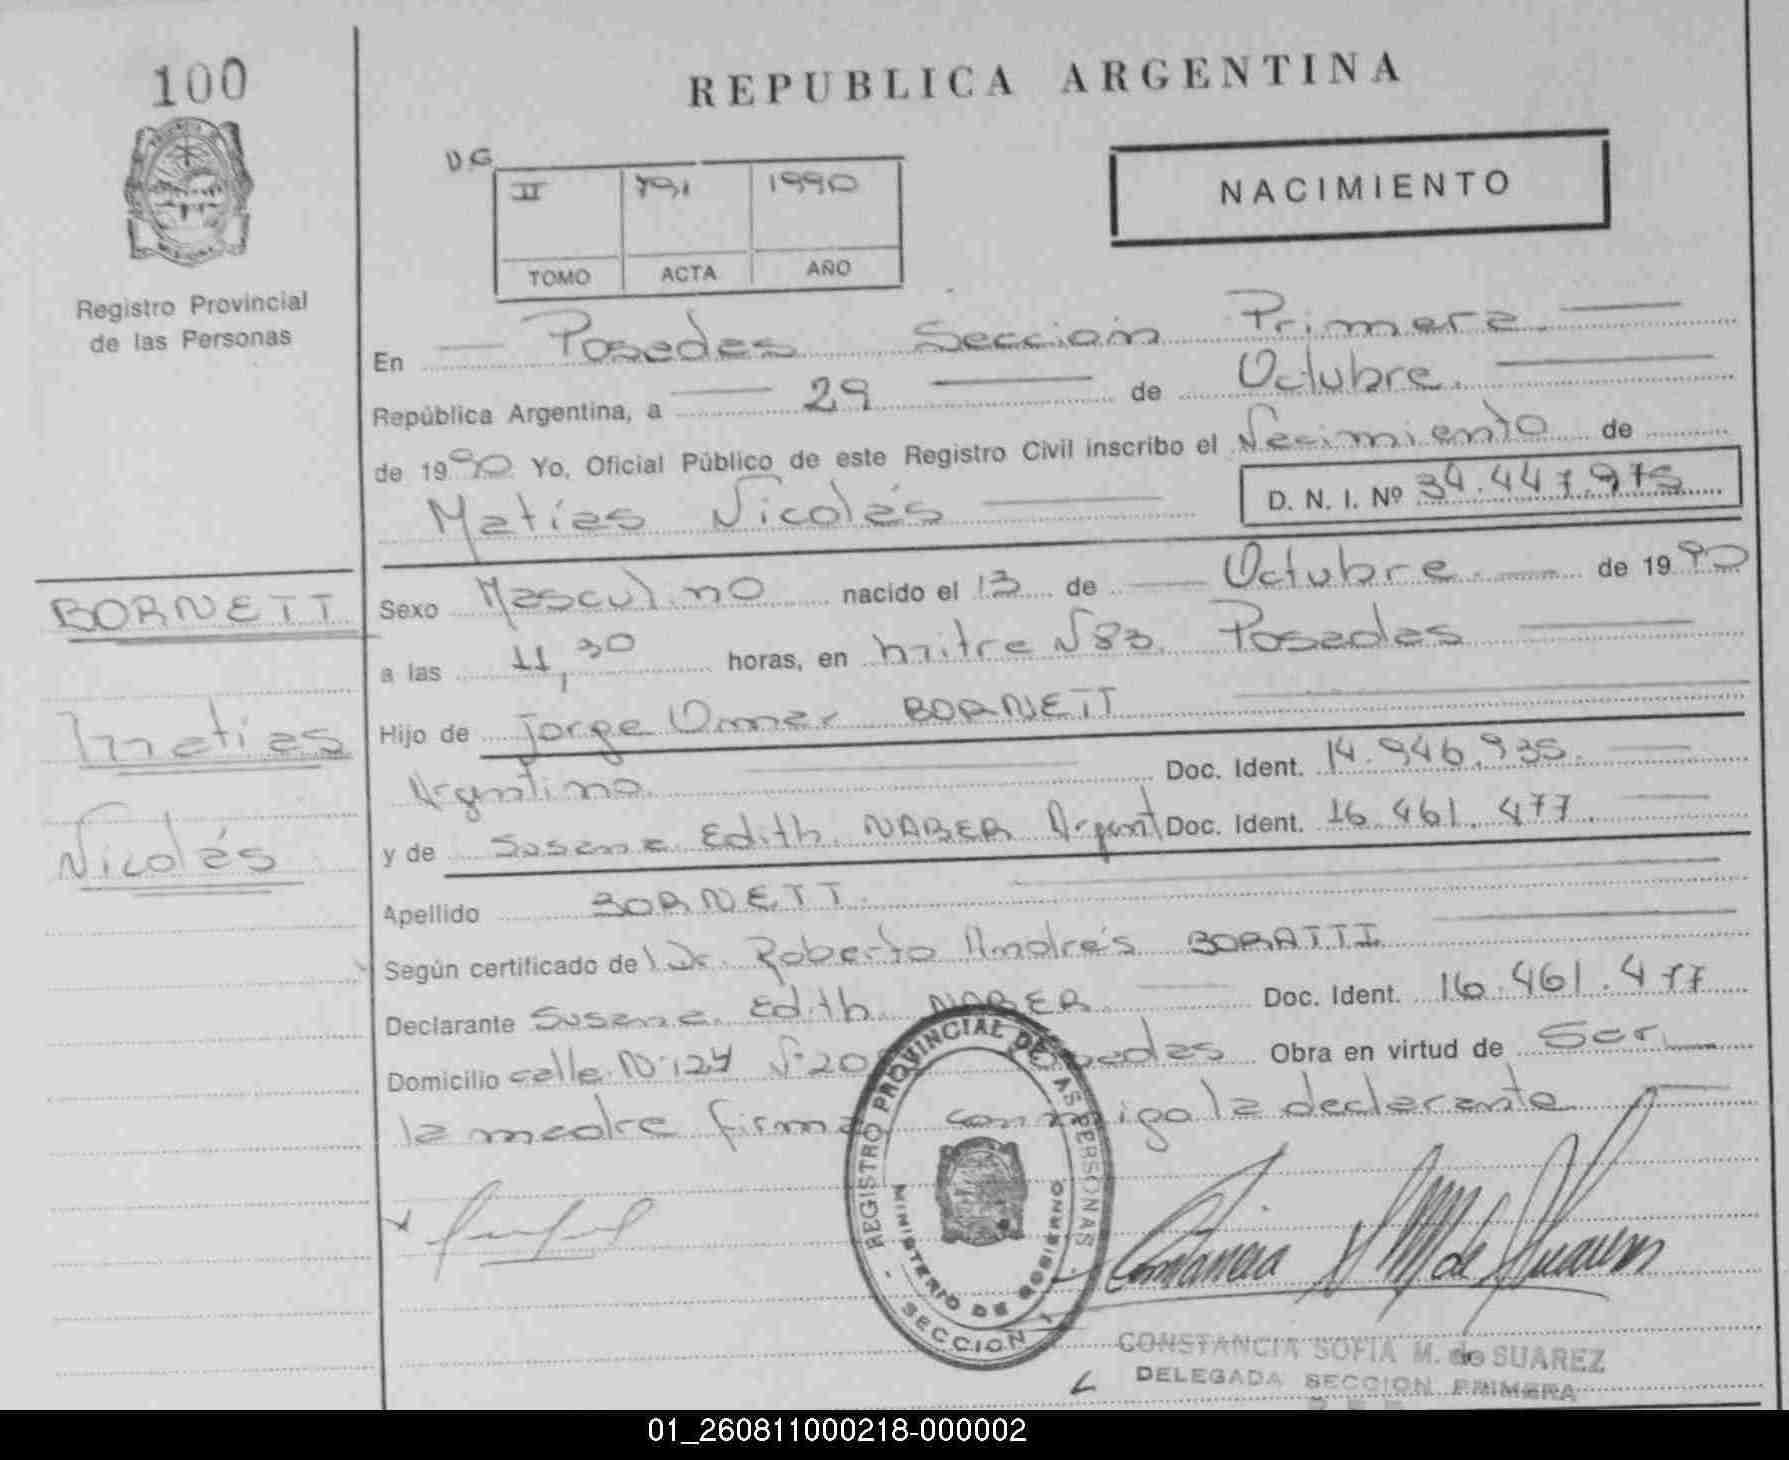 100
REPUBLICA ARGENTINA
Registro Provincial
de las Personas
II 791 1990
TOMO ACTA AÑO
NACIMIENTO
En Posadas Sección Primera
República Argentina, a 29 de Octubre
de 1990 Yo, Oficial Público de este Registro Civil inscribo el Nacimiento de
Matías Nicolás
D. N. I. Nº 34.447.975
BORNETT
Matías
Nicolás
Sexo Masculino nacido el 13 de Octubre de 1990
a las 11,30 horas, en Mitre Nº 83 Posadas
Hijo de Jorge Omar BORNETT
Argentino Doc. Ident. 14.946.935
y de Susana Edith NABER Argent Doc. Ident. 16.461.477
Apellido BORNETT
Según certificado de Dr. Roberto Andrés BORATTI
Declarante Susana Edith NABER Doc. Ident. 16.461.477
Domicilio calle Nº 124 Posadas Obra en virtud de Ser
la madre firma conmigo la declarante
REGISTRO PROVINCIAL DE LAS PERSONAS
MINISTERIO DE GOBIERNO
SECCION 1
CONSTANCIA SOFIA M. de SUAREZ
DELEGADA SECCION PRIMERA
01_260811000218-000002